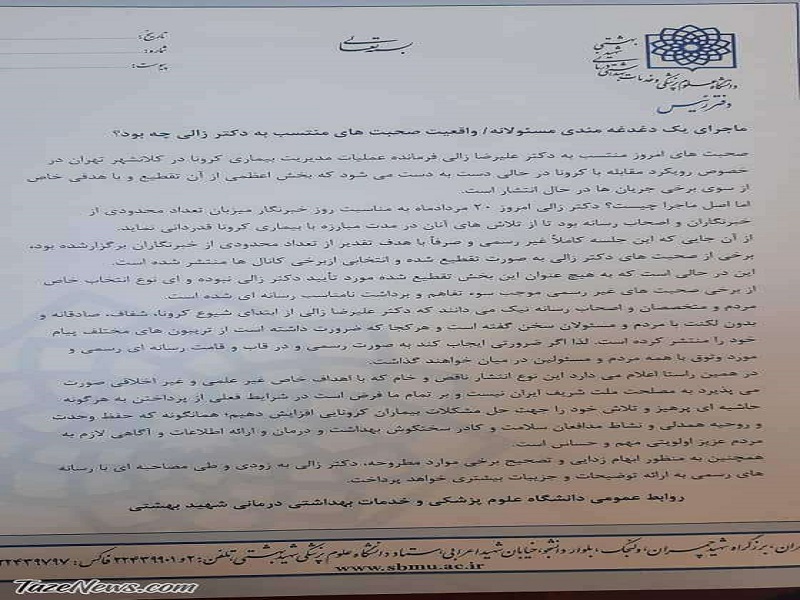 بسمه تعالی
تاریخ:
شماره:
پیوست:
دانشگاه علوم پزشکی و خدمات بهداشتی درمانی
شهید بهشتی
دفتر رئیس
ماجرای یک دغدغه مندی مسئولانه/ واقعیت صحبت های منتسب به دکتر زالی چه بود؟
صحبت های امروز منتسب به دکتر علیرضا زالی فرمانده عملیات مدیریت بیماری کرونا در کلانشهر تهران در
خصوص رویکرد مقابله با کرونا در حالی دست به دست می شود که بخش اعظمی از آن تقطیع و با هدفی خاص
از سوی برخی جریان ها در حال انتشار است.
اما اصل ماجرا چیست؟ دکتر زالی امروز ۲۰ مردادماه به مناسبت روز خبرنگار میزبان تعداد محدودی از
خبرنگاران و اصحاب رسانه بود تا از تلاش های آنان در مدت مبارزه با بیماری کرونا قدردانی نماید.
از آن جایی که این جلسه کاملاً غیر رسمی و صرفاً با هدف تقدیر از تعداد محدودی از خبرنگاران برگزارشده بود،
برخی از صحبت های دکتر زالی به صورت تقطیع شده و انتخابی ازبرخی کانال ها منتشر شده است.
این در حالی است که به هیچ عنوان این بخش تقطیع شده مورد تأیید دکتر زالی نبوده و ای نوع انتخاب خاص
از برخی صحبت های غیر رسمی موجب سوء تفاهم و برداشت نامناسب رسانه ای شده است.
مردم و متخصصان و اصحاب رسانه نیک می دانند که دکتر علیرضا زالی از ابتدای شیوع کرونا، شفاف، صادقانه و
بدون لکنت با مردم و مسئولان سخن گفته است و هرکجا که ضرورت داشته است از تریبون های مختلف پیام
خود را منتشر کرده است. لذا اگر ضرورتی ایجاب کند به صورت رسمی و در قاب و قامت رسانه ای رسمی و
مورد وثوق با همه مردم و مسئولین در میان خواهند گذاشت.
در همین راستا اعلام می دارد این نوع انتشار ناقص و خام که با اهداف خاص غیر علمی و غیر اخلاقی صورت
می پذیرد به مصلحت ملت شریف ایران نیست و بر تمام ما فرض است در شرایط فعلی از پرداختن به هرگونه
حاشیه ای پرهیز و تلاش خود را جهت حل مشکلات بیماران کرونایی افزایش دهیم؛ همانگونه که حفظ وحدت
و روحیه همدلی و نشاط مدافعان سلامت و کادر سختکوش بهداشت و درمان و ارائه اطلاعات و آگاهی لازم به
مردم عزیز اولویتی مهم و حساس است.
همچنین به منظور ابهام زدایی و تصحیح برخی موارد مطروحه، دکتر زالی به زودی و طی مصاحبه ای با رسانه
های رسمی به ارائه توضیحات و جزییات بیشتری خواهد پرداخت.
روابط عمومی دانشگاه علوم پزشکی و خدمات بهداشتی درمانی شهید بهشتی
بزرگراه شهید چمران، ولنجک، بلوار دانشجو، خیابان شهید اعرابی، ستاد دانشگاه علوم پزشکی شهید بهشتی، تلفن: ۲ و ۲۲۴۳۹۹۰۱ فاکس: ۲۲۴۳۹۷۹۷
www.sbmu.ac.ir
TazeNews.com